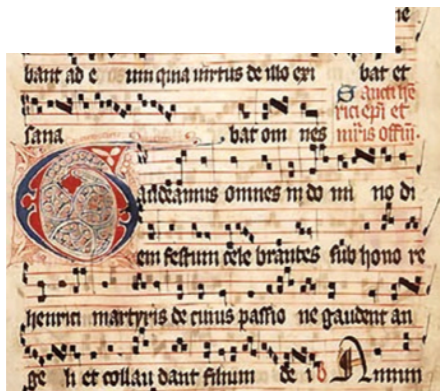 ne
bant ad e os um quia uirtus de illo exi bat et
sana bat om nes
Sancti he
rici epi et
mris offm.
Gaudeamus omnes in do mi no di
em festum cele brantes sub hono re
henrici martyris de cuius passio ne gaudent an
ge li et collau dant filium de i Annum